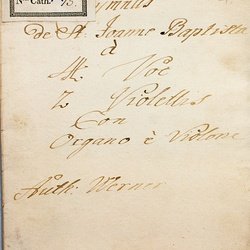 Nro Cath. 73.
Hymnus
de St. Joanne Baptista
à
4. Voc
2 Violettis
Con
Organo è Violone
Auth: Werner